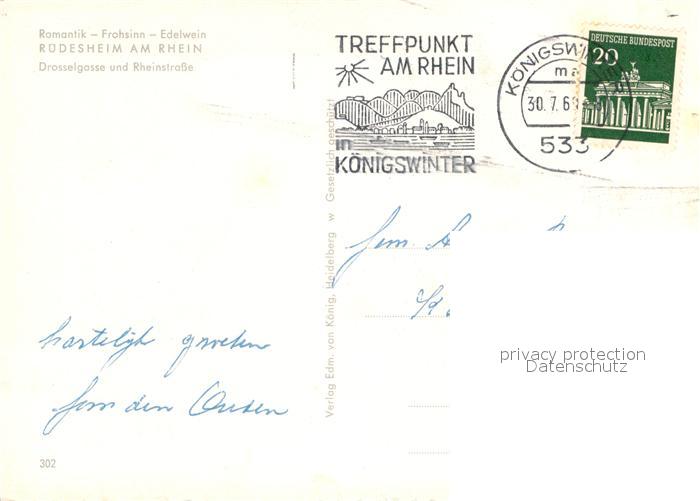 Romantik – Frohsinn – Edelwein
RÜDESHEIM AM RHEIN
Drosselgasse und Rheinstraße
TREFFPUNKT
AM RHEIN
in
KÖNIGSWINTER
KÖNIGSWIN
30.7.6
533
20
DEUTSCHE BUNDESPOST
Verlag Edm. von König, Heidelberg w Gesetzlich geschützt
fam. A
hartelijk groeten
fam den Ouden
privacy protection
Datenschutz
302